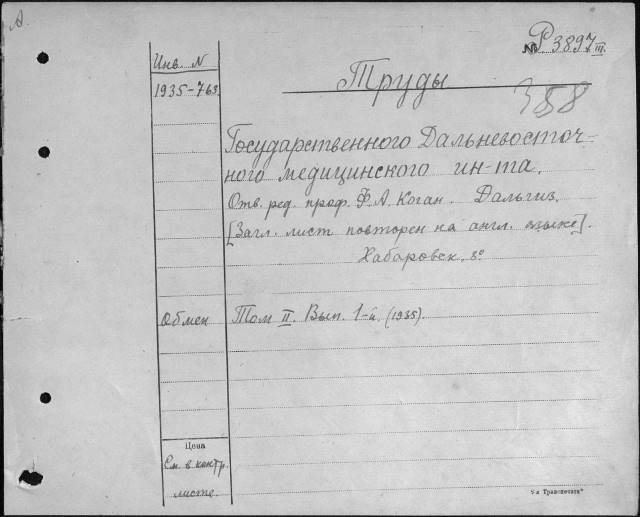 А.
№ Р 3897 III.
Инв. N
Труды
1935-763
358
Государственного Дальневосточ-
ного медицинского ин-та.
Отв. ред. проф. Ф. А. Коган. Дальгиз.
[Загл. лист повторен на англ. языке].
Хабаровск. 8°
Обмен
Том II. Вып. 1-й. (1935).
Цена
См. в. контр.
листе.